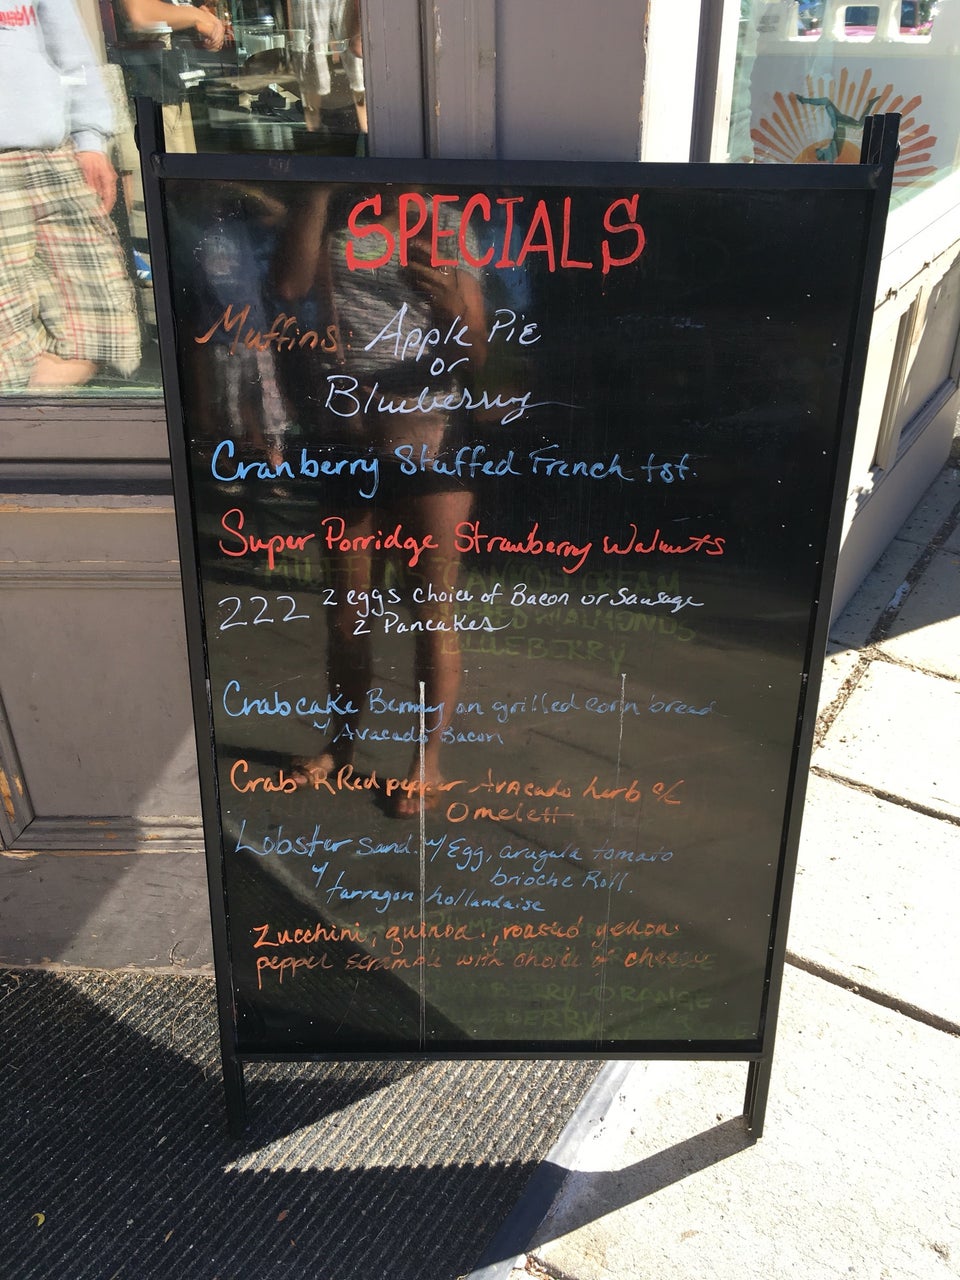 SPECIALS
Muffins: Apple Pie
or
Blueberry
Cranberry Stuffed French tst.
Super Porridge Strawberry Walnuts
222 2 eggs choice of Bacon or Sausage
2 Pancakes
MUFFINS CREAM
ALMONDS
BLUEBERRY
Crabcake Benny on grilled corn bread
w/ Avacado Bacon
Crab R Red pepper Avacado herb
Omelett
Lobster Sand. w/ Egg, arugula tomato
brioche Roll.
w/ tarragon hollandaise
Zucchini, quinoa, roasted yellow
pepper scramble with choice of cheese
CRANBERRY-ORANGE